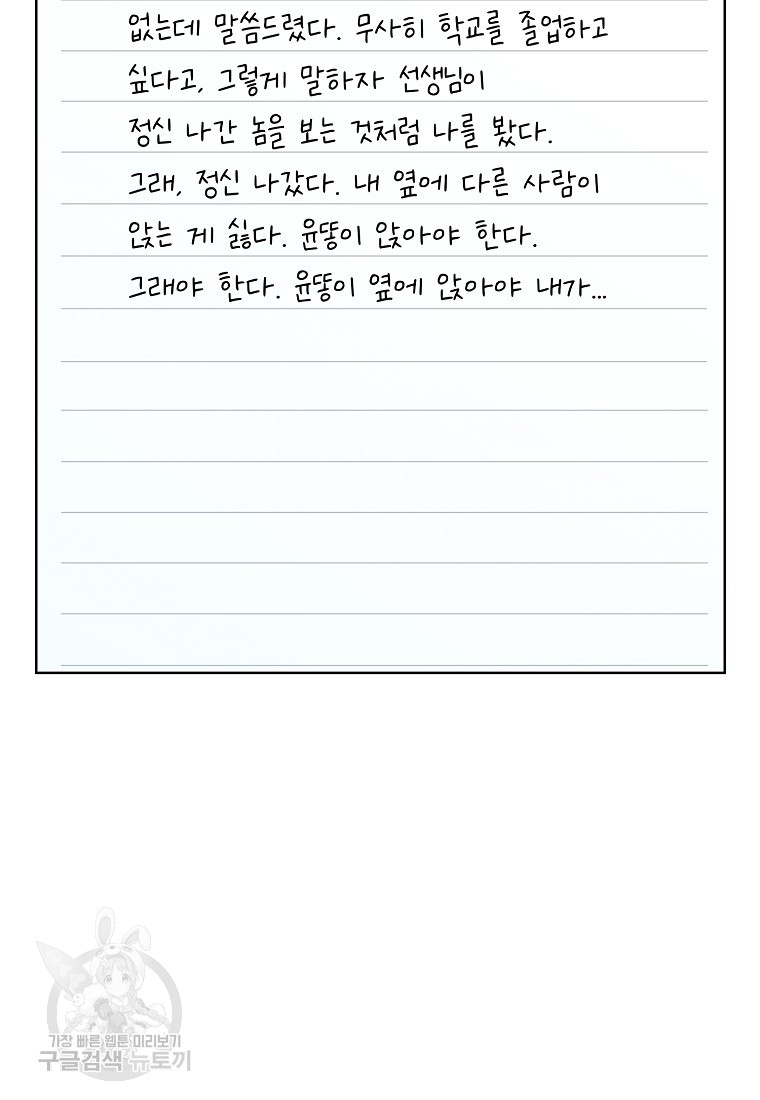 없는데 말씀드렸다. 무사히 학교를 졸업하고
싶다고, 그렇게 말하자 선생님이
정신 나간 놈을 보는 것처럼 나를 봤다.
그래, 정신 나갔다. 내 옆에 다른 사람이
앉는 게 싫다. 윤똥이 앉아야 한다.
그래야 한다. 윤똥이 옆에 앉아야 내가...
가장 빠른 웹툰 미리보기
구글검색 뉴토끼